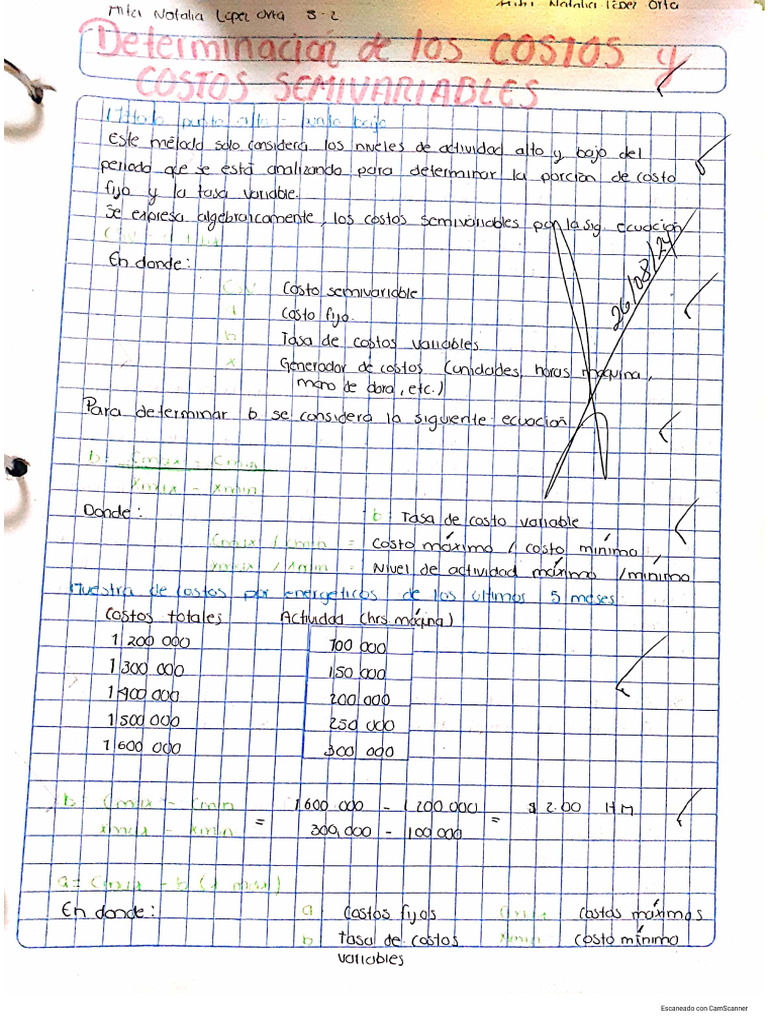 Mitzi Natalia López Orta 3-2
Mitzi Natalia López Orta
Determinación de los COSTOS y
COSTOS SEMIVARIABLES
Método punto alto - punto bajo
Este método solo considera los niveles de actividad alto y bajo del
periodo que se está analizando para determinar la porción de costo
fijo y la tasa variable.
Se expresa algebraicamente, los costos semivariables por la sig. ecuación
26/08/24
En donde:
CSV Costo semivariable
Costo fijo.
b Tasa de costos variables
x Generador de costos (unidades, horas máquina,
mano de obra, etc.)
Para determinar b se considera la siguiente ecuación
b: Cmax - Cmin
xmax - xmin
Donde: b Tasa de costo variable
Cmax / Cmin = Costo máximo / costo mínimo
xmax / xmin = Nivel de actividad máximo / mínimo
Muestra de costos por energéticos de los últimos 5 meses
Costos totales Actividad (hrs máquina)
1 200 000 100 000
1 300 000 150 000
1 400 000 200 000
1 500 000 250 000
1 600 000 300 000
b: Cmax - Cmin = 1 600 000 - 1 200.000 = $ 2.00 HM
xmax - xmin 300,000 - 100 000
a= Cmax - b (x max)
En donde: a Costos fijos Cmax Costos máximos
b Tasa de costos xmin costo mínimo
variables
Escaneado con CamScanner